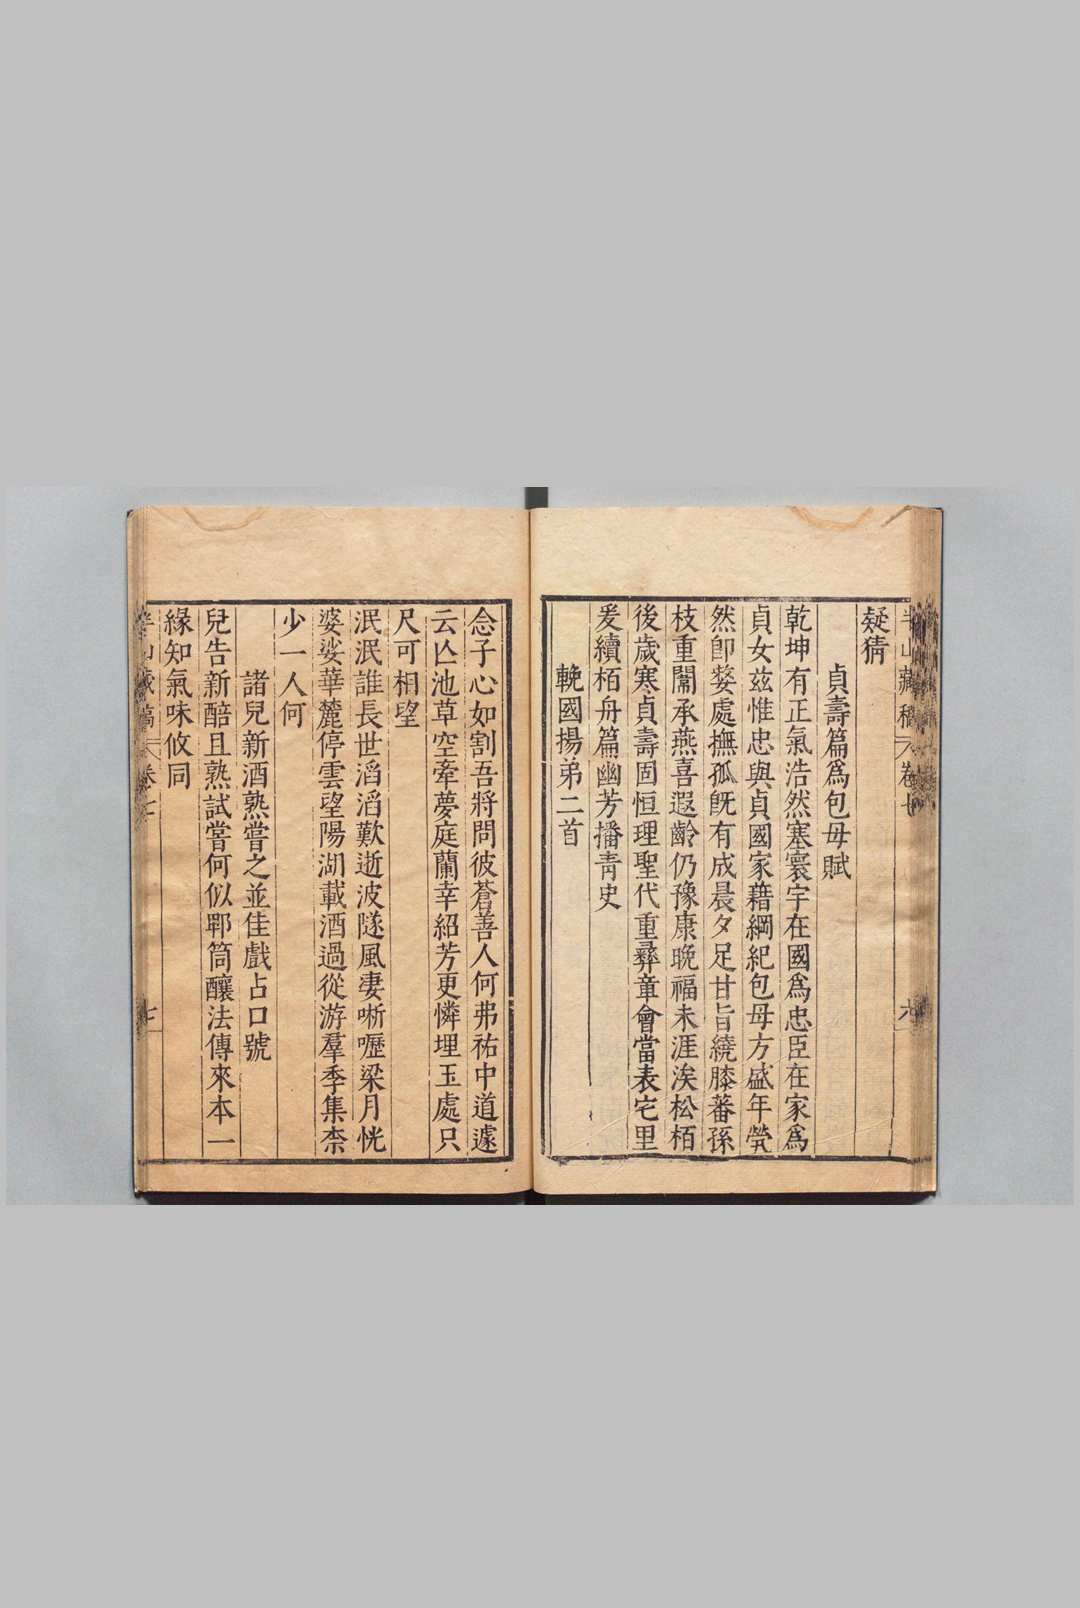 半山藏稿 卷七 六
疑猜
貞壽篇爲包母賦
乾坤有正氣浩然塞寰宇在國爲忠臣在家爲
貞女兹惟忠與貞國家藉綱紀包母方盛年煢
然卽嫠處撫孤旣有成晨夕足甘旨繞膝蕃孫
枝重闈承燕喜遐齡仍豫康晚福未涯涘松栢
後歲寒貞壽固恒理聖代重彞章會當表宅里
爰續栢舟篇幽芳播靑史
輓國揚弟二首
念子心如割吾將問彼蒼善人何弗祐中道遽
云亾池草空牽夢庭蘭幸紹芳更憐埋玉處只
尺可相望
泯泯誰長世滔滔歎逝波隧風凄唽嚦梁月恍
婆娑華麓停雲望陽湖載酒過從游羣季集柰
少一人何
諸兒新酒熟嘗之並佳戲占口號
兒告新醅且熟試嘗何似郫筒釀法傳來本一
緣知氣味攸同
半山藏稿 卷七 七